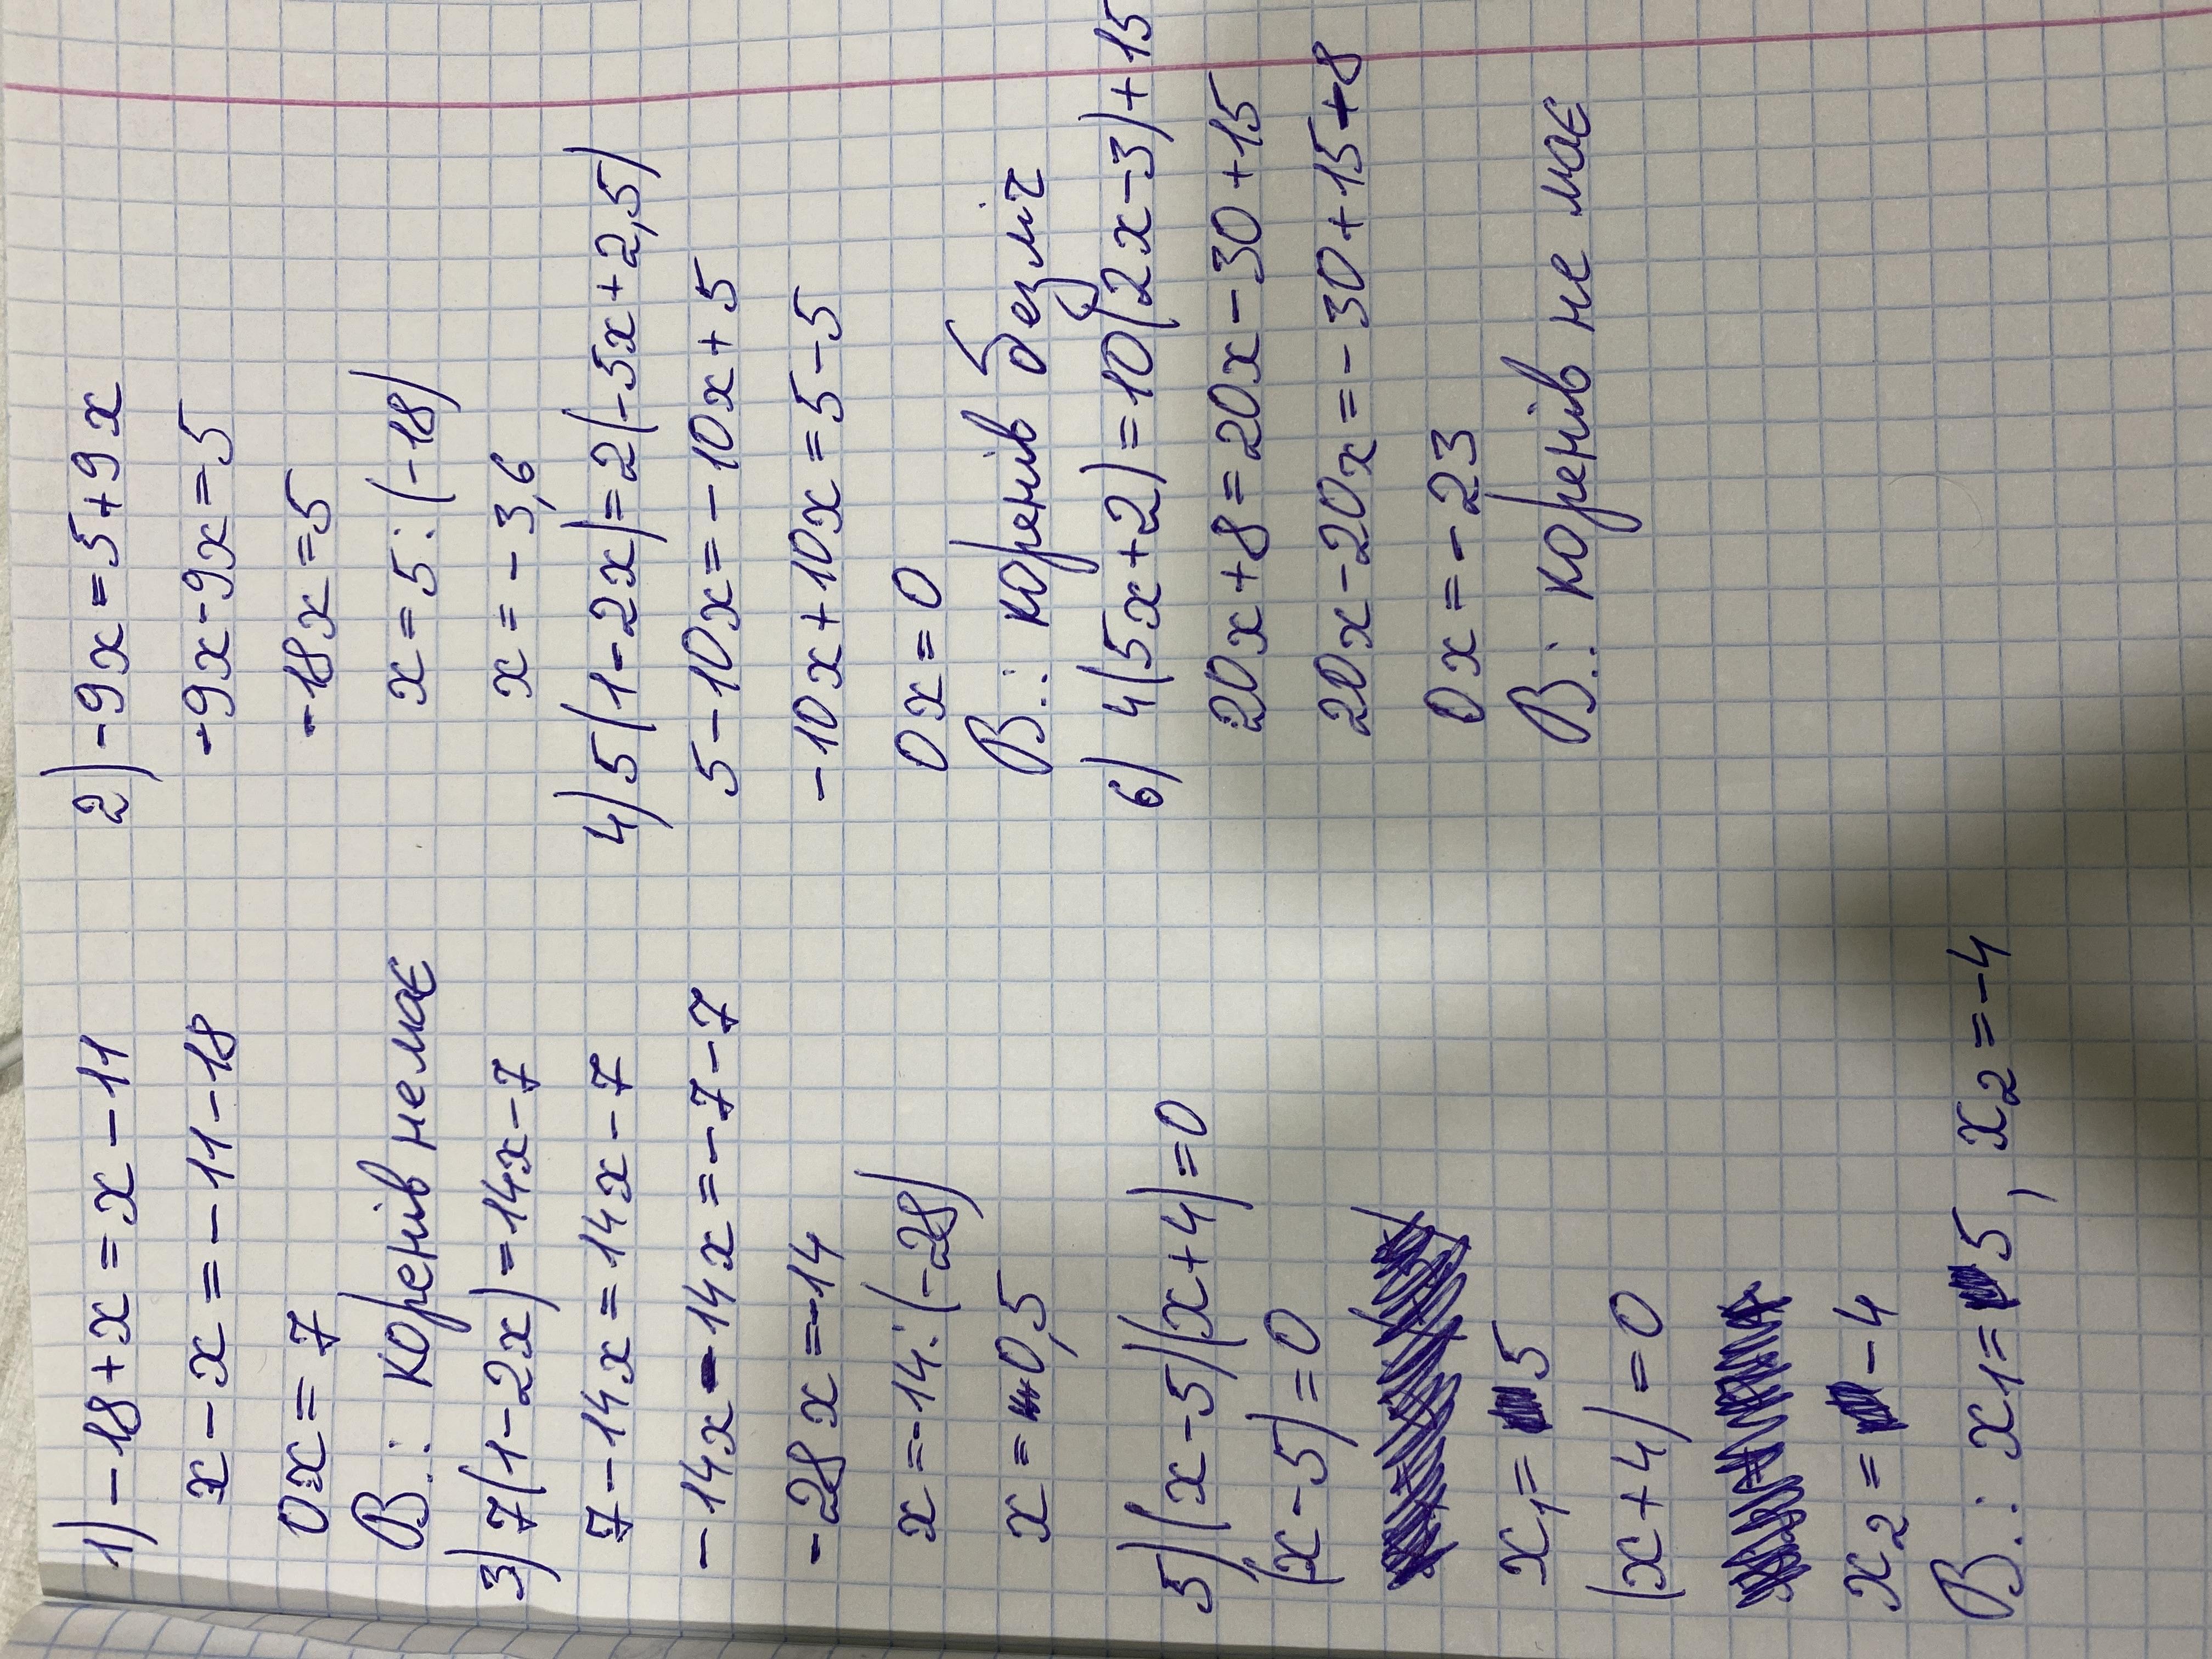 1) -18+x=x-11
x-x=-11-18
0x=7
В.: коренів немає
3) 7(1-2x)=14x-7
7-14x=14x-7
-14x-14x=-7-7
-28x=-14
x=-14:(-28)
x=0,5
5) (x-5)(x+4)=0
(x-5)=0
x₁=5
(x+4)=0
x₂=-4
В.: x₁=5, x₂=-4
2) -9x=5+9x
-9x-9x=5
-18x=5
x=5:(-18)
x=-3,6
4) 5(1-2x)=2(-5x+2,5)
5-10x=-10x+5
-10x+10x=5-5
0x=0
В.: коренів безліч
6) 4(5x+2)=10(2x-3)+15
20x+8=20x-30+15
20x-20x=-30+15-8
0x=-23
В.: коренів не має